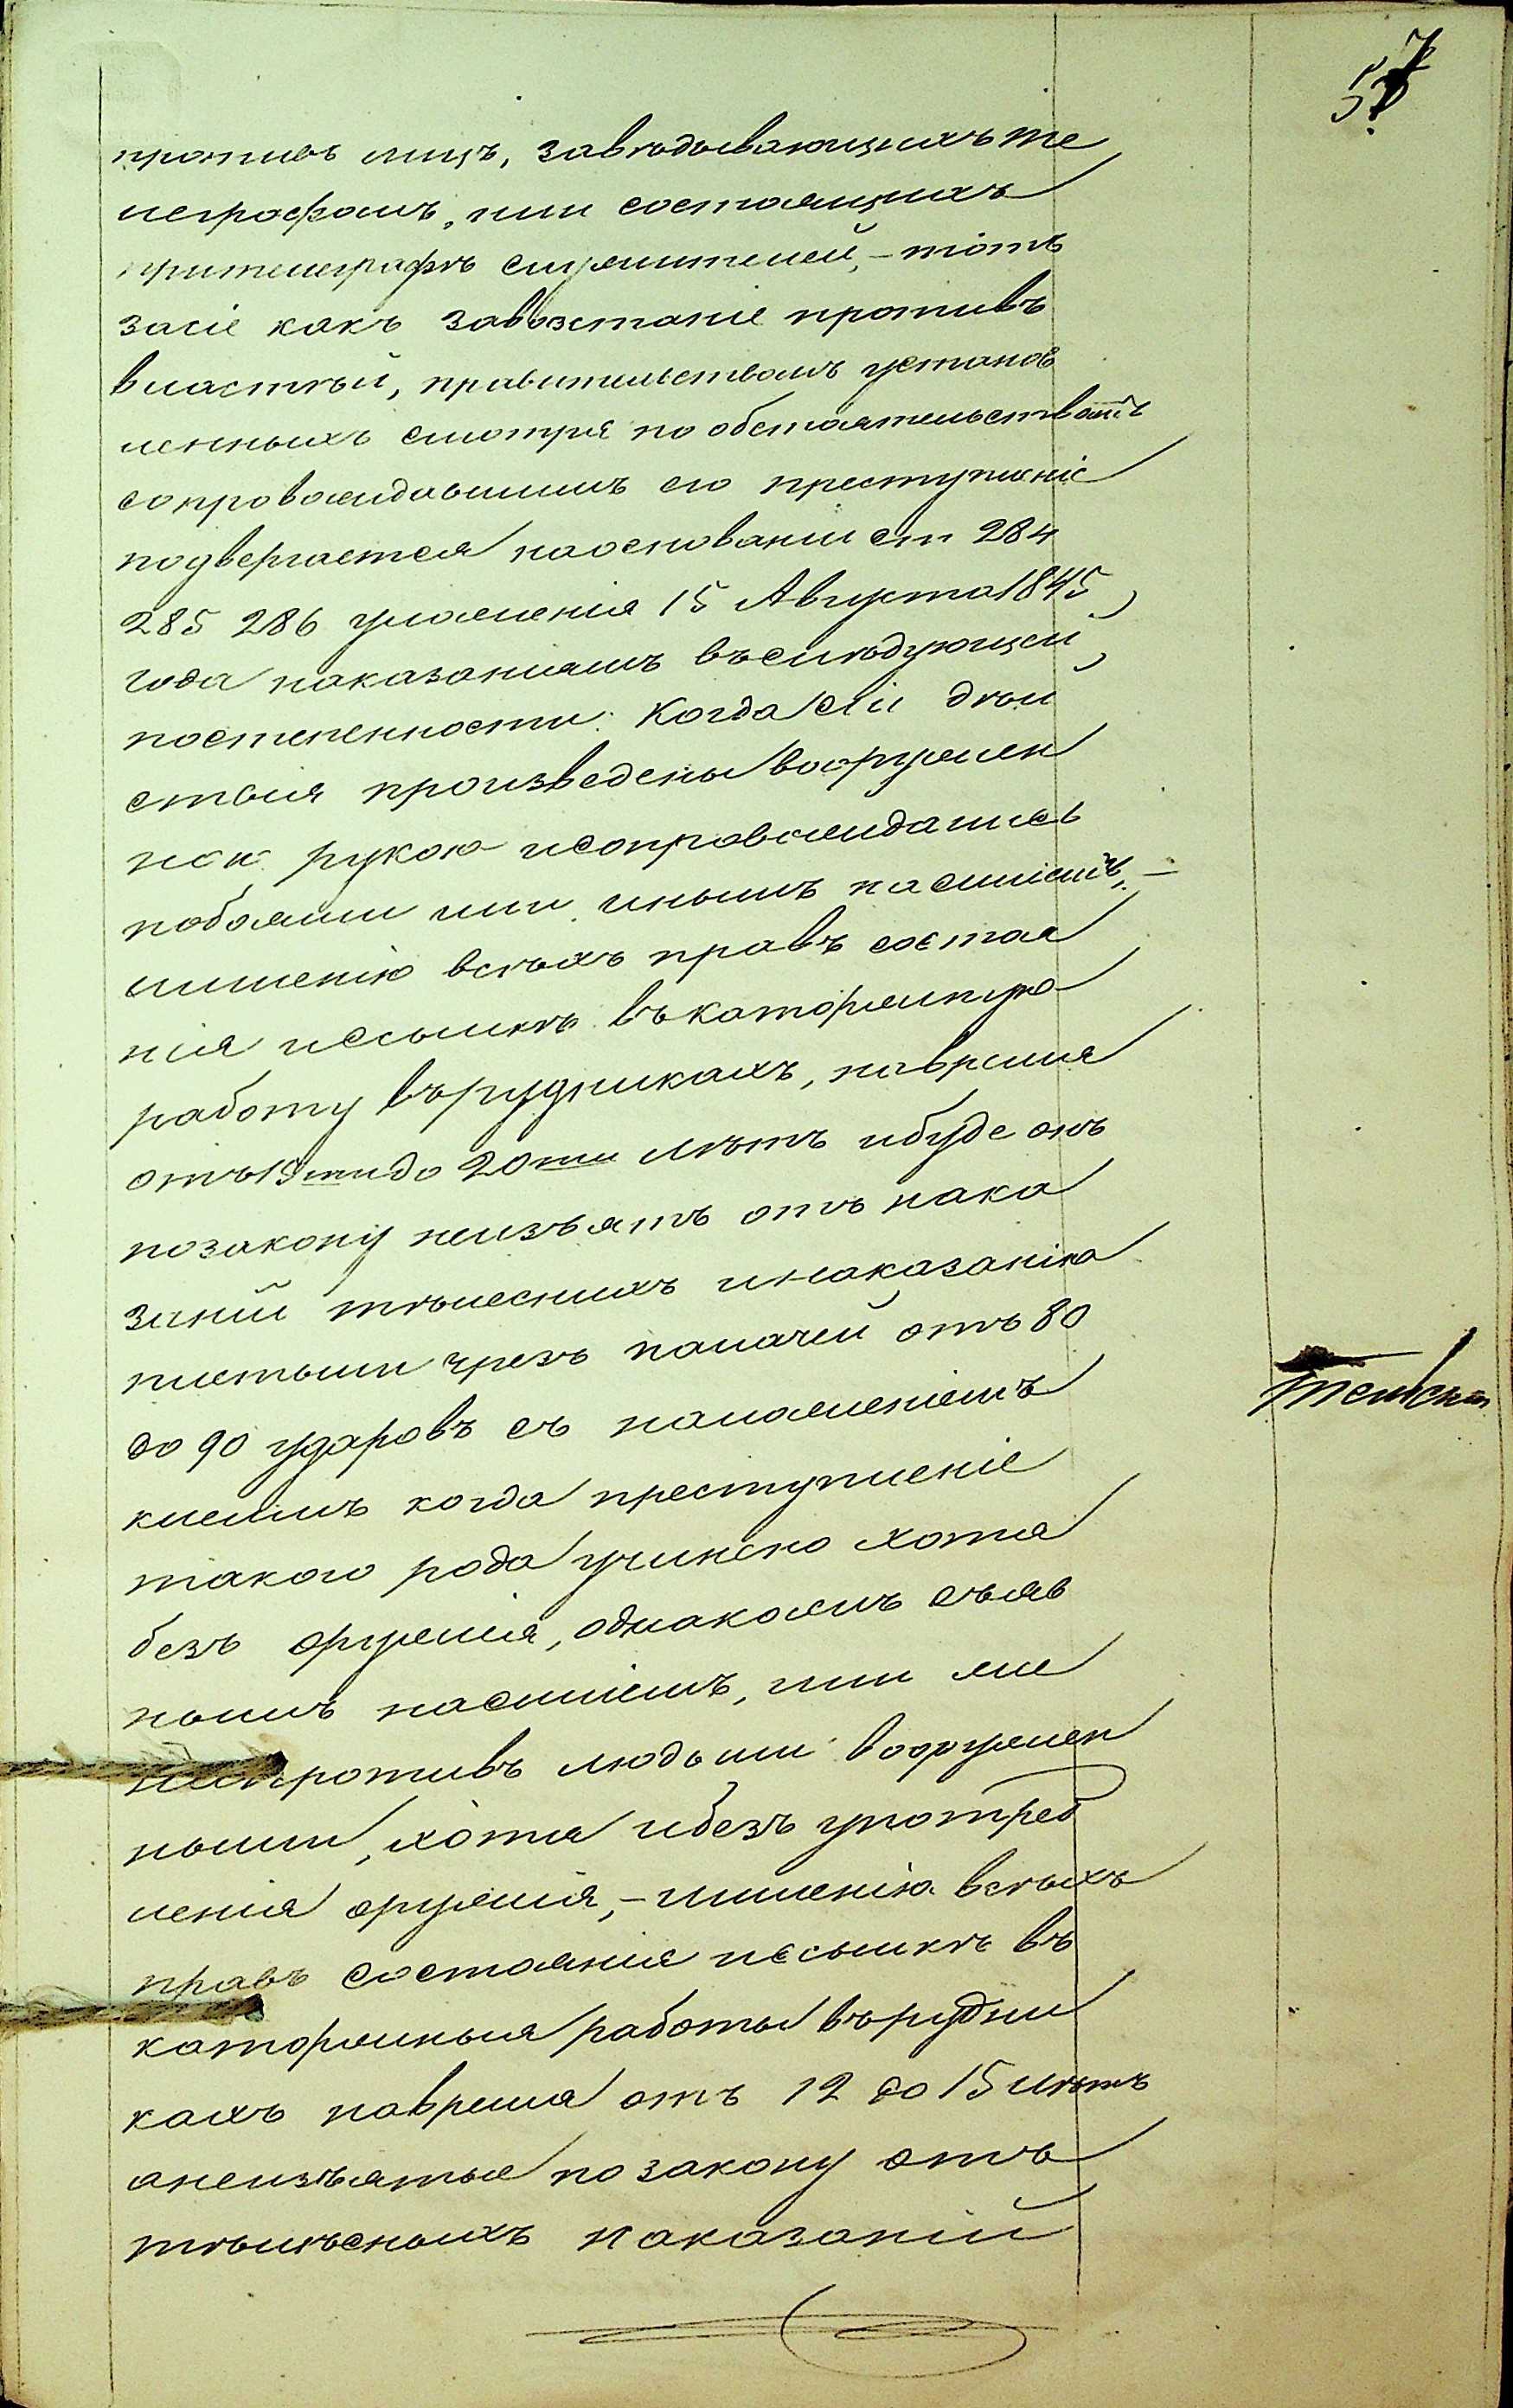 57
противъ лицъ, завѣдывающихъ те
леграфомъ, или состоящихъ
прителеграфѣ служителей, – тотъ
засіе какъ завозстаніе противъ
властѣй, правительствомъ установ
ленныхъ смотря по обстоятельствамъ
сопровождавшимъ его преступленіе
подвергается наоснованіи ст 284
285 286 уложенія 15 Августа 1845
года наказаніямъ въслѣдующей
постепенности: Когда сіи дѣй
ствія произведены вооружен
ною рукою исопровождались
побоями или инымъ насиліемъ, –
лишенію всѣхъ правъ состоя
нія иссылкѣ въкаторжную
работу върудникахъ, навремя
отъ 15ти до 20ти лѣтъ ибуде онъ
позакону неизъятъ отъ нака
заній тѣлесныхъ инаказанію
плетьми чрезъ палачей отъ 80
до 90 ударовъ съ наложеніемъ
клеймъ когда преступленіе
такого рода учинено хотя
безъ оружія, однакожъ съяв
нымъ насиліемъ, или же
напротивъ людьми вооружен
ными, хотя ибезъ употреб
ленія оружія, – лишенію всѣхъ
правъ состоянія иссылкѣ въ
каторжныя работы върудни
кахъ навремя отъ 12 до 15 лѣтъ
анеизъятые по закону отъ
тѣлѣсныхъ наказаній